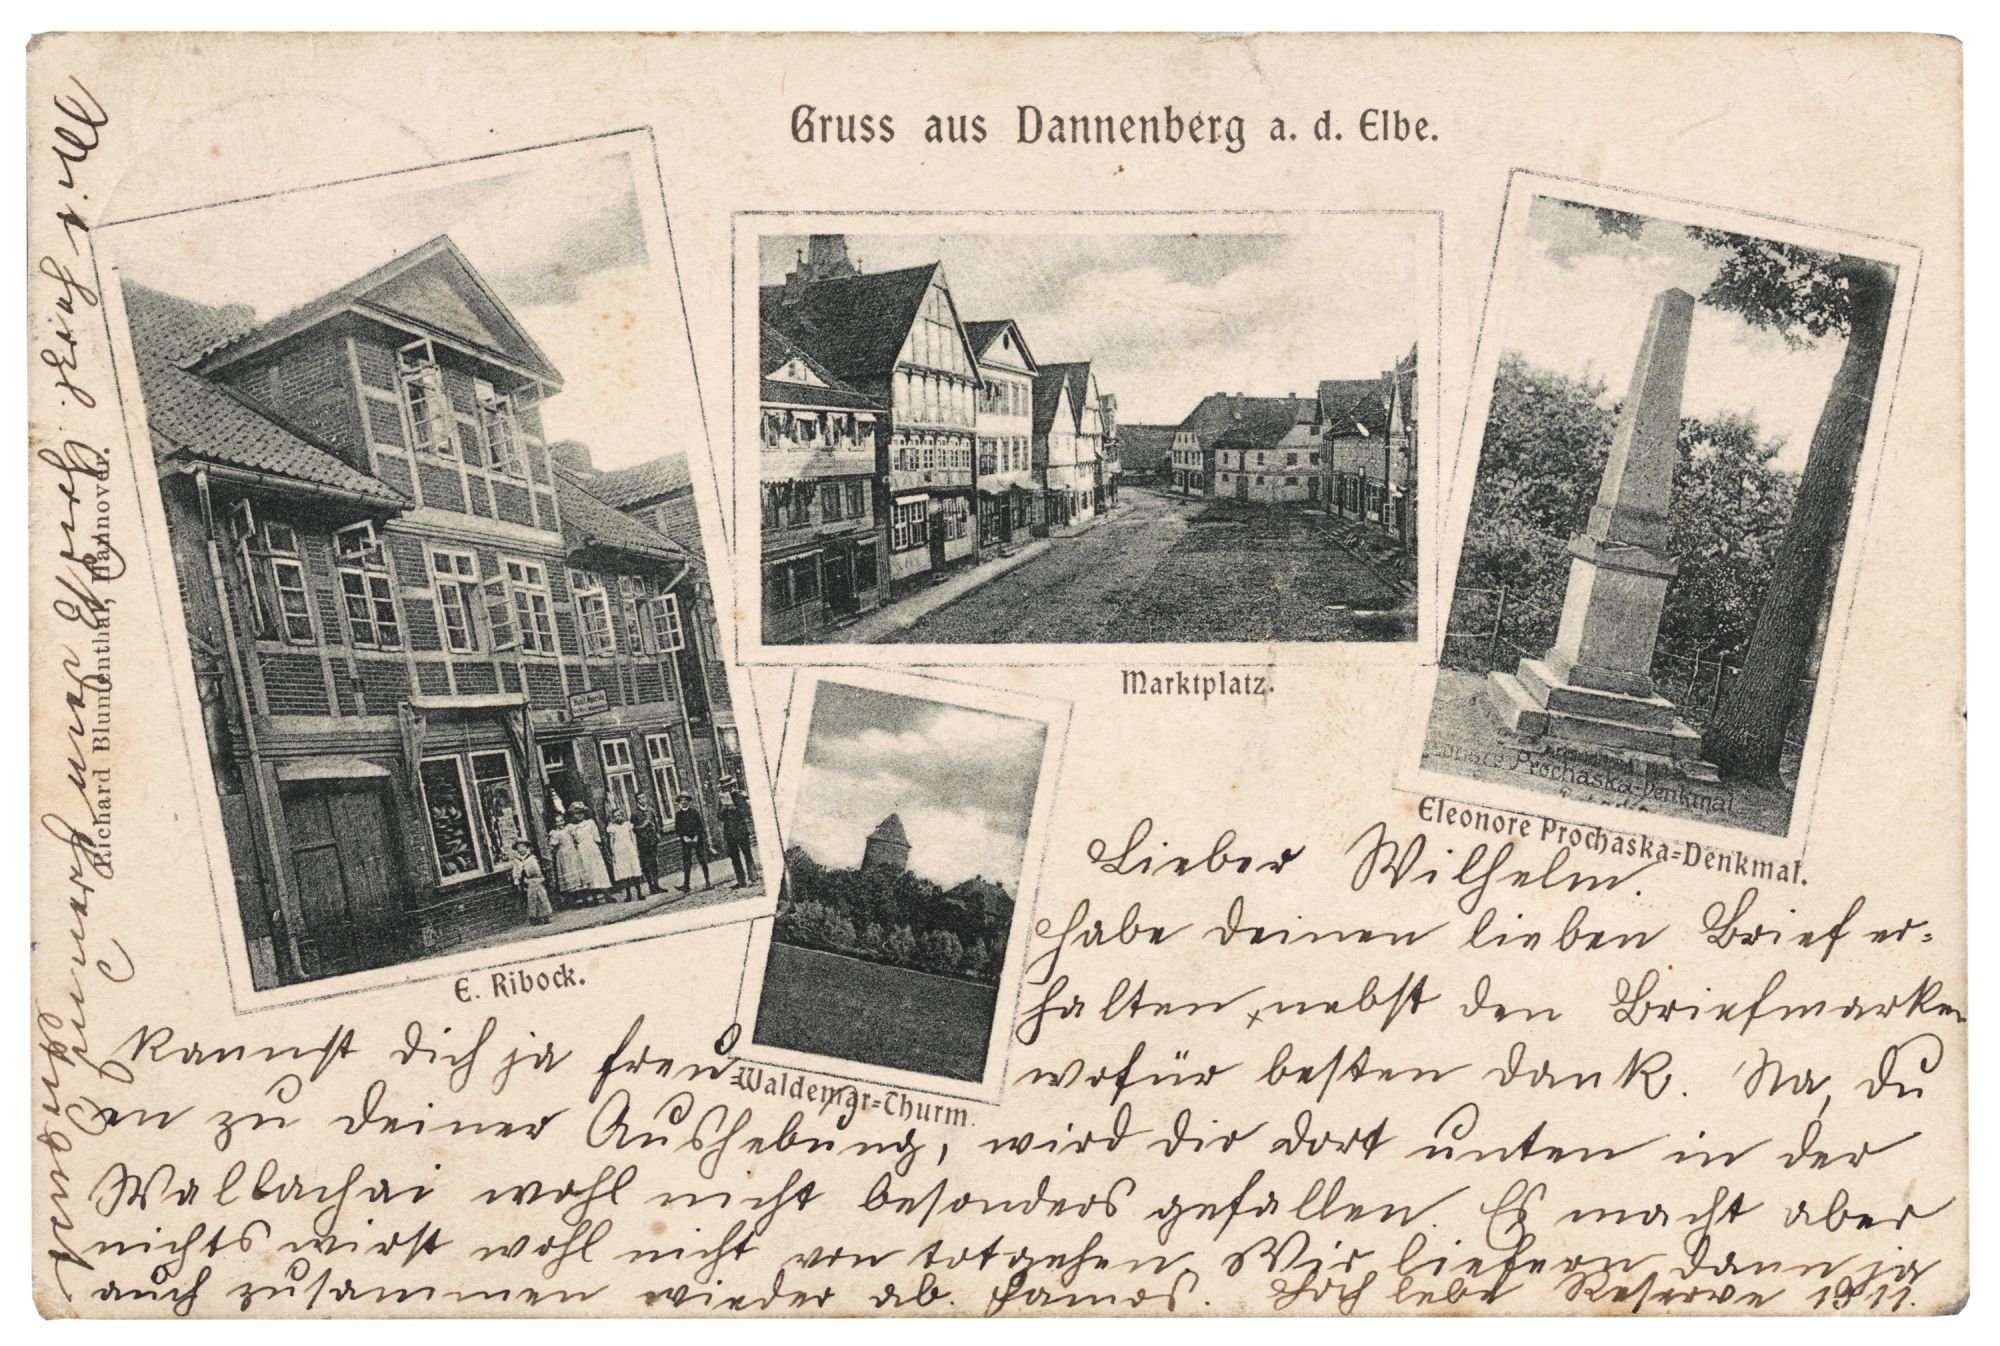 Gruss aus Dannenberg a. d. Elbe.
E. Ribock.
Marktplatz.
Waldemar-Thurm.
Prochaska-Denkmal
Eleonore Prochaska-Denkmal.
Richard Blumenthal, Hannover.
Lieber Wilhelm.
habe deinen lieben Brief er-
halten, nebst den Briefmarken
wofür besten Dank. Na, du
kannst dich ja freu-
en zu deiner Aushebung, wird dir dort unten in der
Wallachai wohl nicht besonders gefallen. Es macht aber
nichts wirst wohl nicht von totgehen. Wir liefern dann ja
auch zusammen wieder ab. Famos. Hoch lebe Reserve 1911.